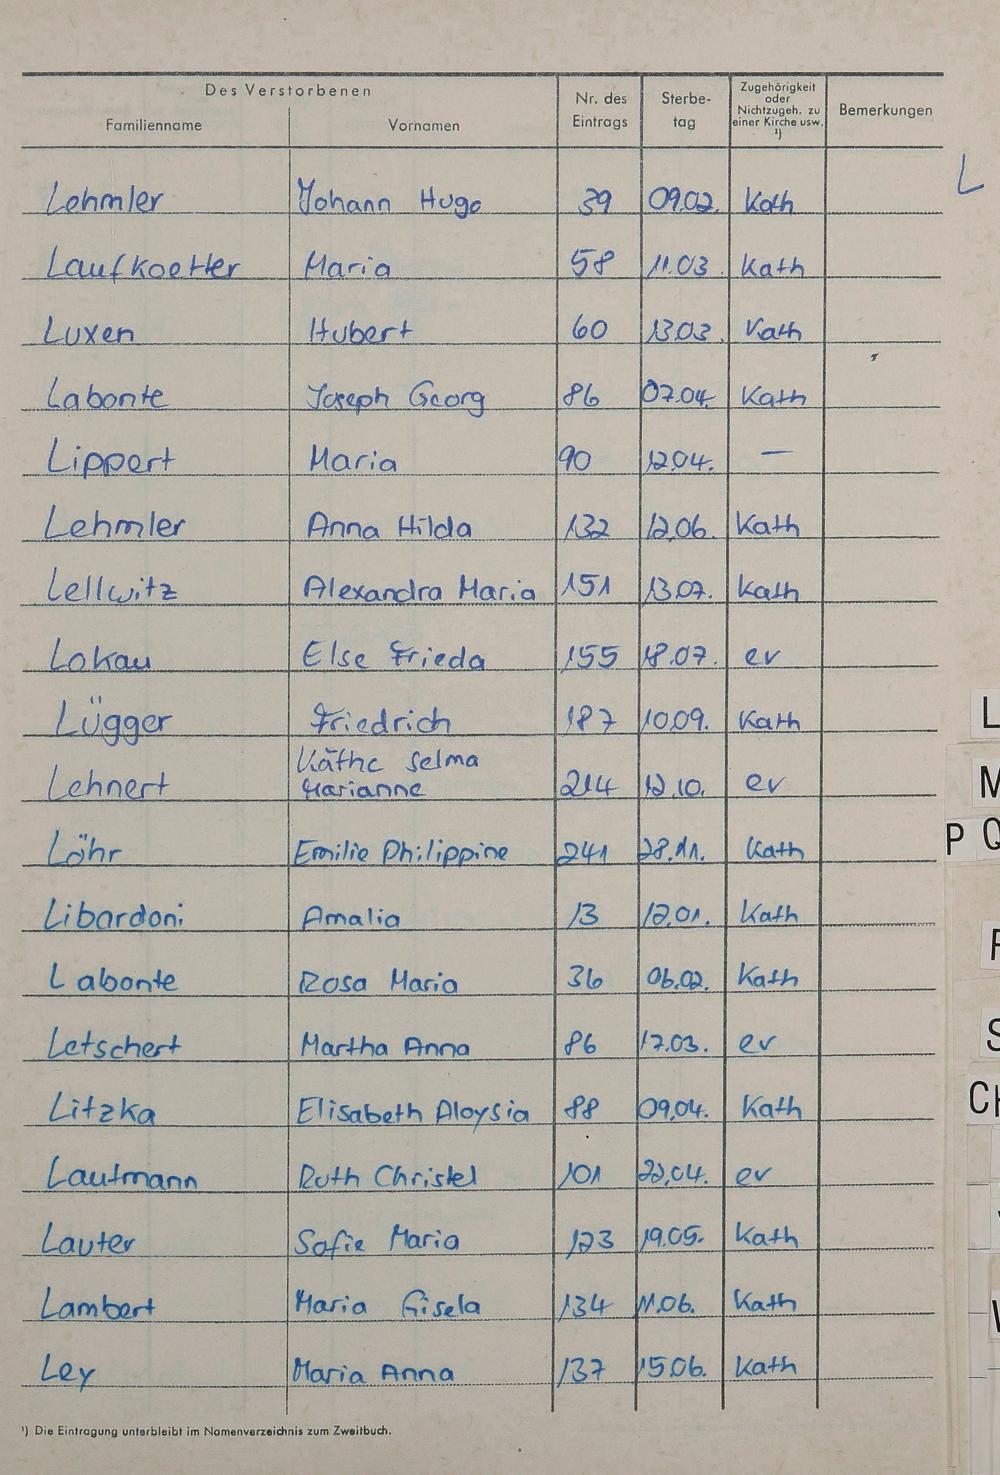 Des Verstorbenen
Familienname Vornamen Nr. des Eintrags Sterbe-tag Zugehörigkeit oder Nichtzugeh. zu einer Kirche usw. ¹) Bemerkungen
L
Lehmler Johann Hugo 39 09.02. Kath
Laufkoetter Maria 58 11.03. Kath
Luxen Hubert 60 13.03. Kath
Labonte Joseph Georg 86 07.04. Kath
Lippert Maria 90 12.04. —
Lehmler Anna Hilda 132 12.06. Kath
Lellwitz Alexandra Maria 151 13.07. Kath
Lokau Else Frieda 155 18.07. ev
Lügger Friedrich 187 10.09. Kath
Lehnert Käthe Selma Marianne 214 12.10. ev
Löhr Emilie Philippine 241 28.11. Kath
Libardoni Amalia 13 12.01. Kath
Labonte Rosa Maria 36 06.02. Kath
Letschert Martha Anna 86 17.03. ev
Litzka Elisabeth Aloysia 88 09.04. Kath
Lautmann Ruth Christel 101 22.04. ev
Lauter Sofie Maria 123 19.05. Kath
Lambert Maria Gisela 134 11.06. Kath
Ley Maria Anna 137 15.06. Kath
¹) Die Eintragung unterbleibt im Namenverzeichnis zum Zweitbuch.
L
M
P Q
S